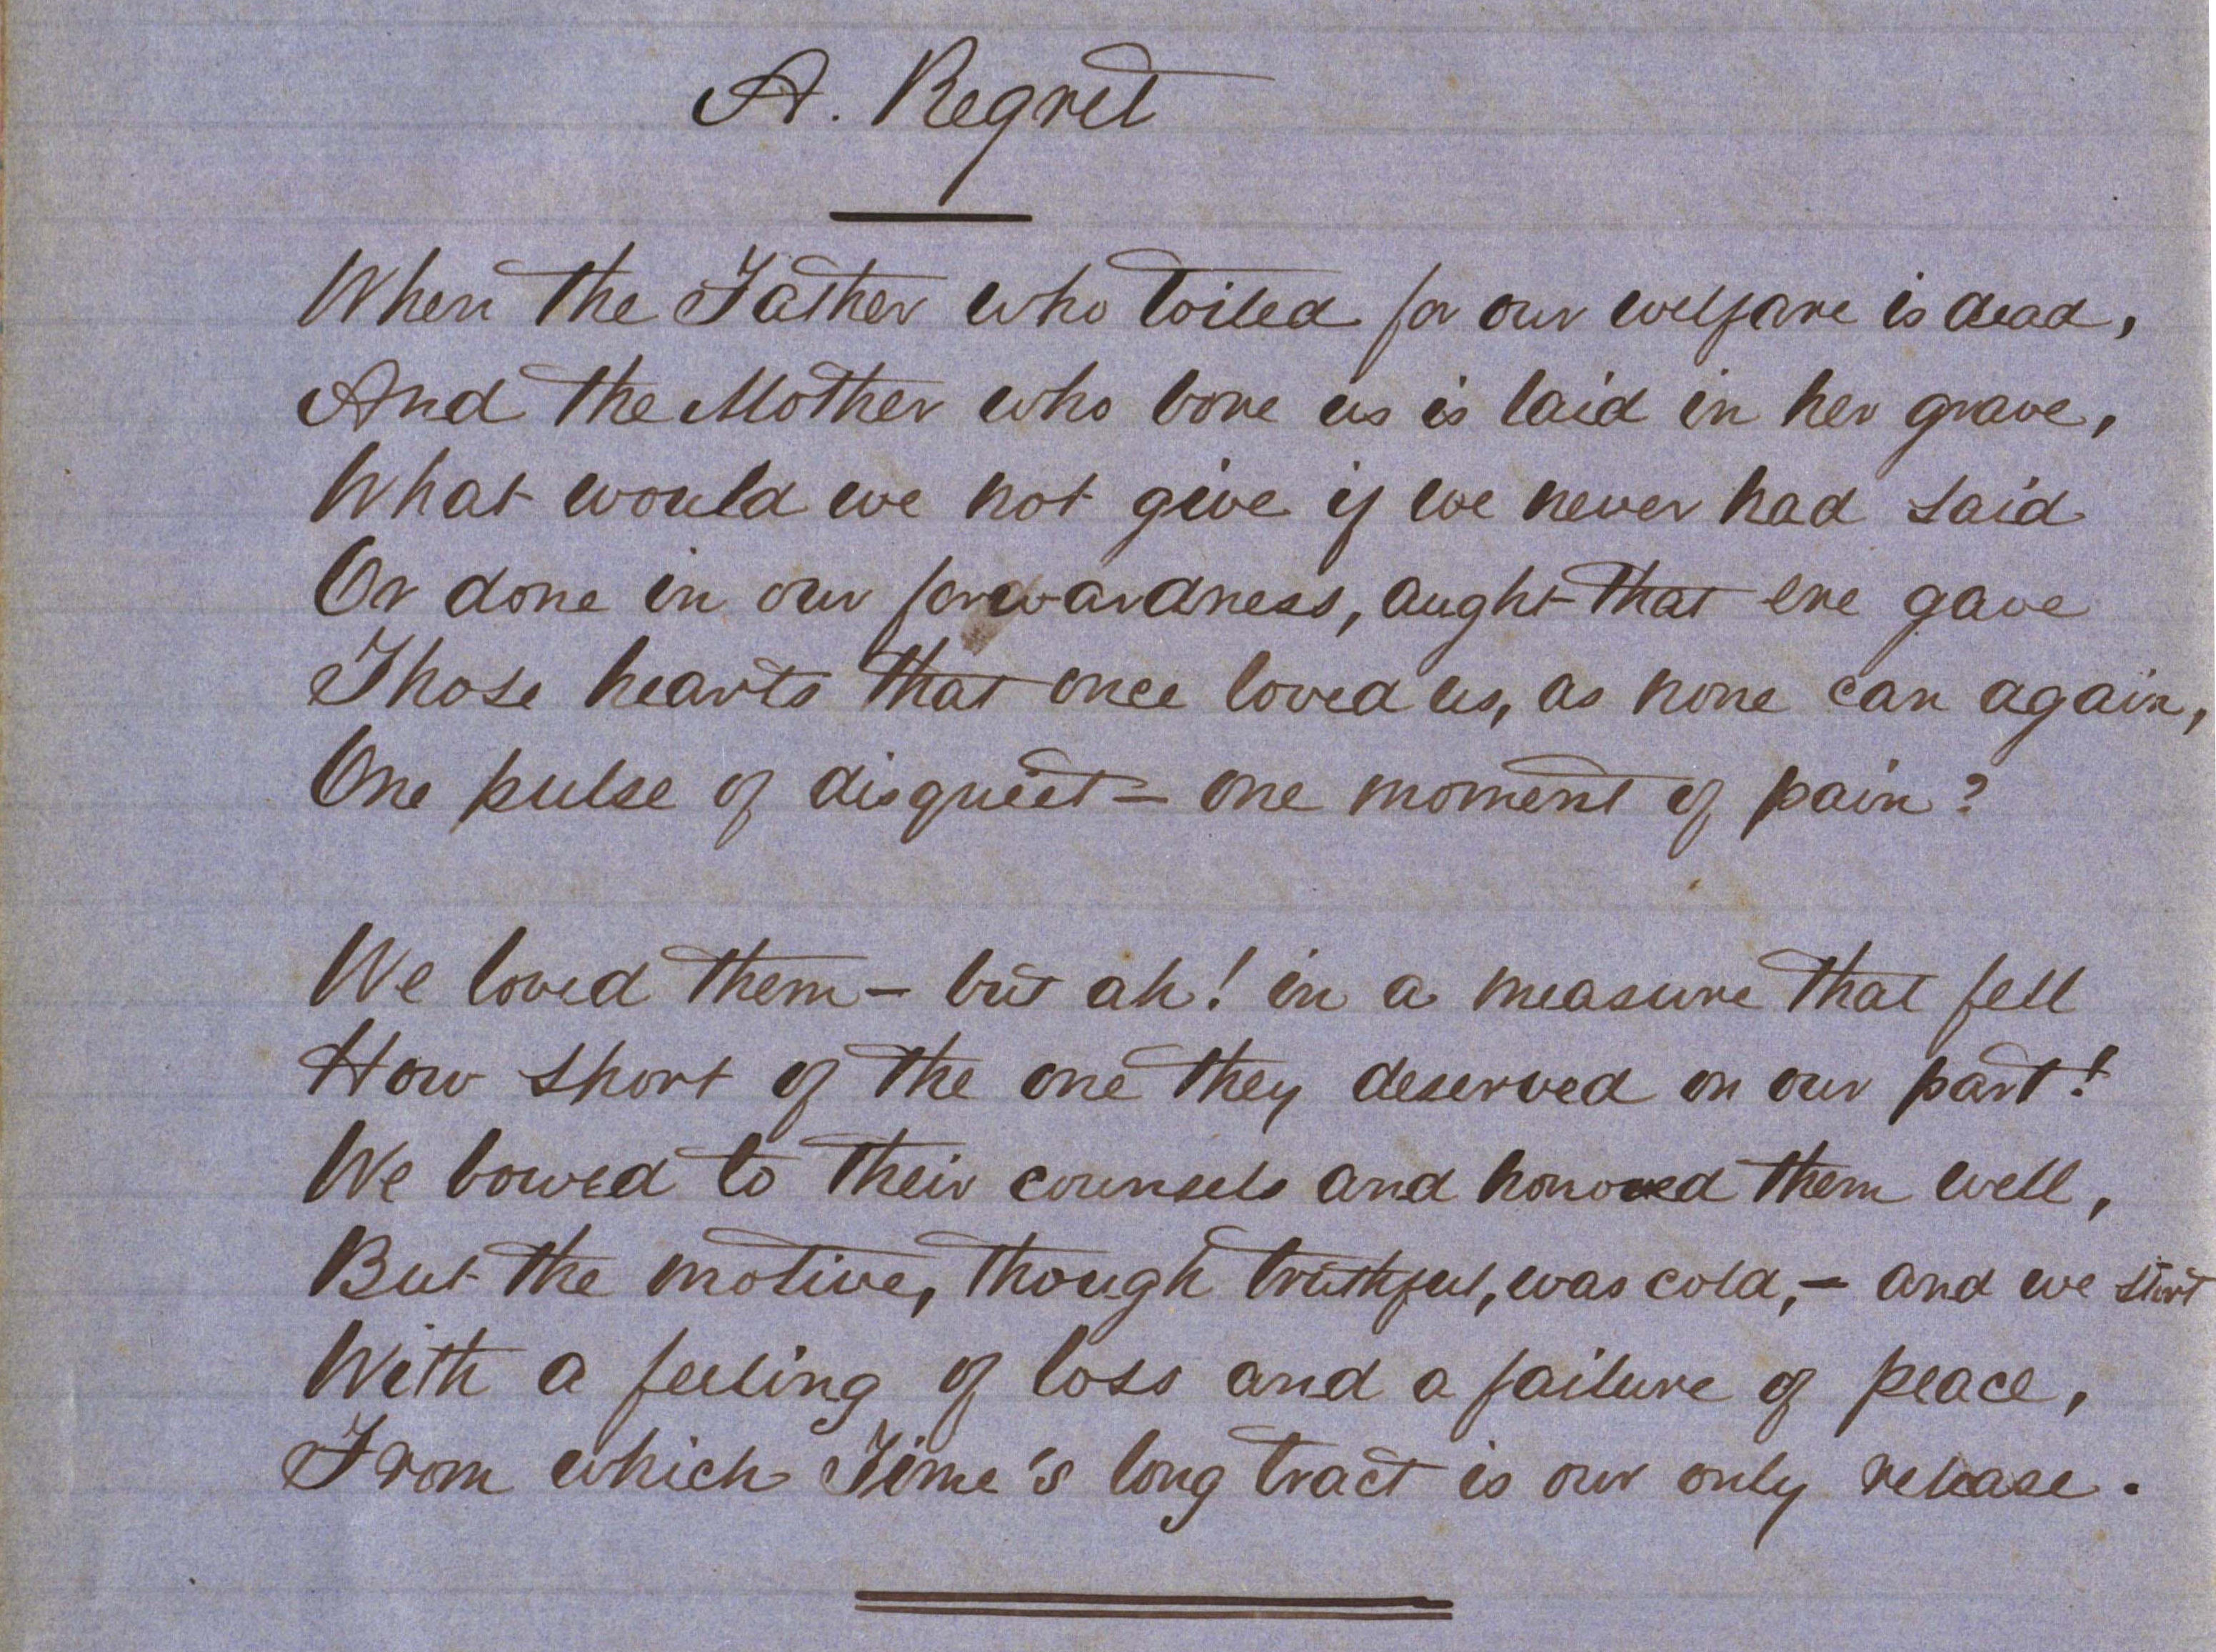 A. Regret
When the Father who toiled for our welfare is dead,
And the Mother who bore us is laid in her grave,
What would we not give if we never had said
Or done in our forwardness, aught that ere gave
Those hearts that once loved us, as none can again,
One pulse of disquiet – one moment of pain?
We loved them – but ah! in a measure that fell
How short of the one they deserved on our part!
We bowed to their counsels and honored them well,
But the motive, though truthful, was cold, – and we start
With a feeling of loss and a failure of peace,
From which Time's long tract is our only release.